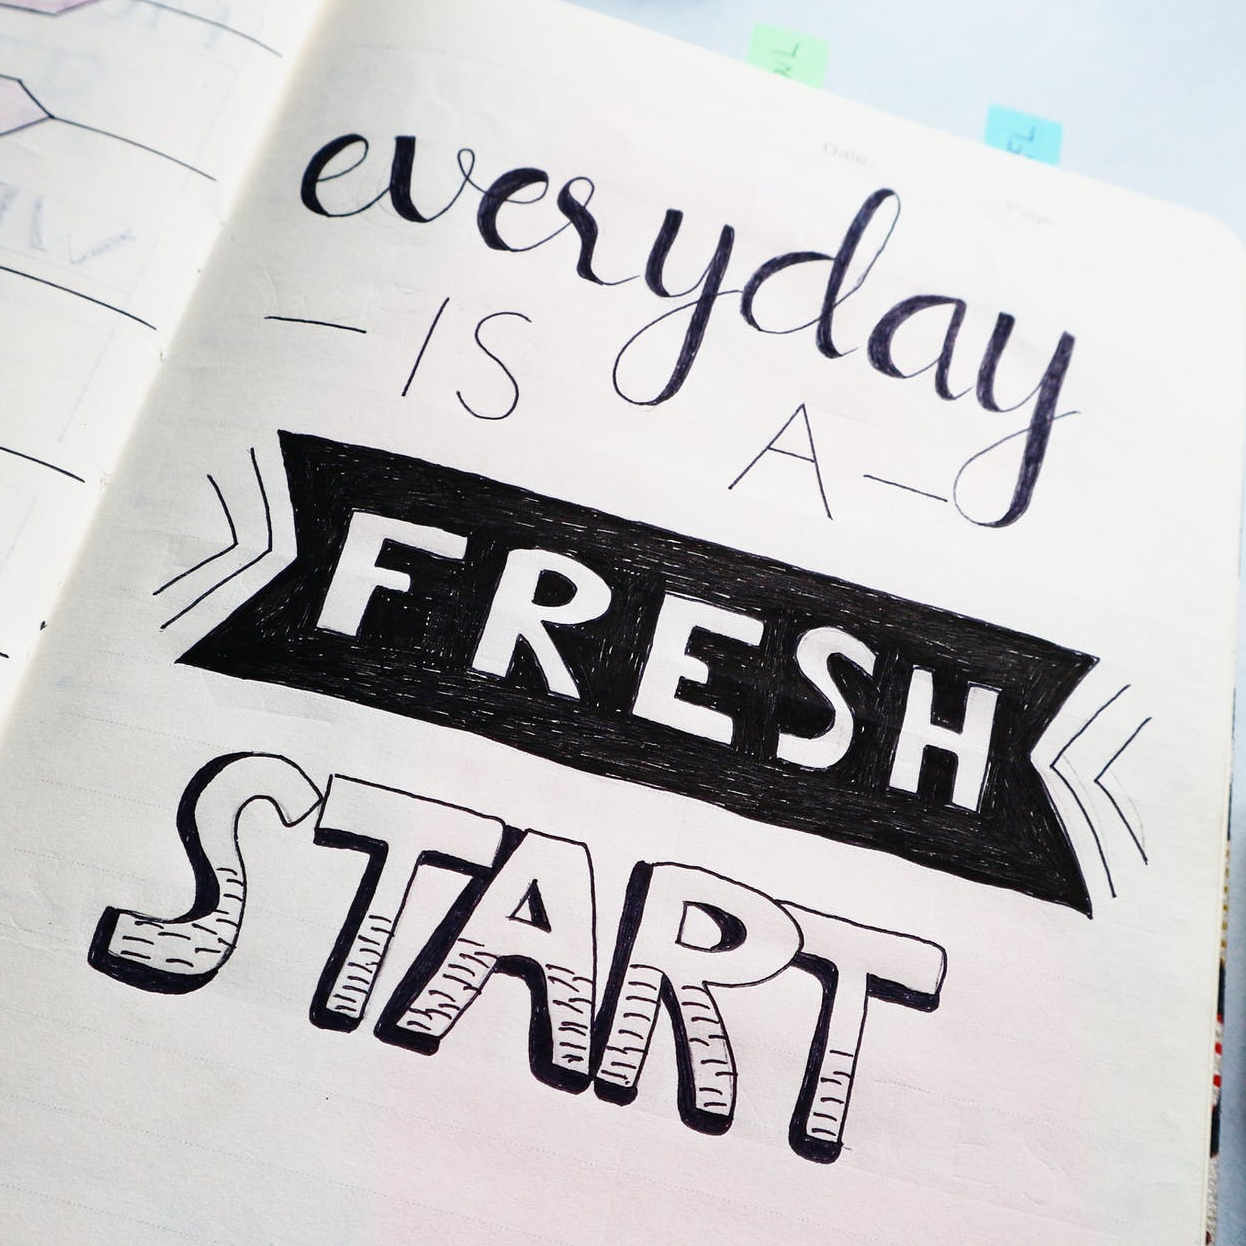 Date
everyday
— IS A —
FRESH
START